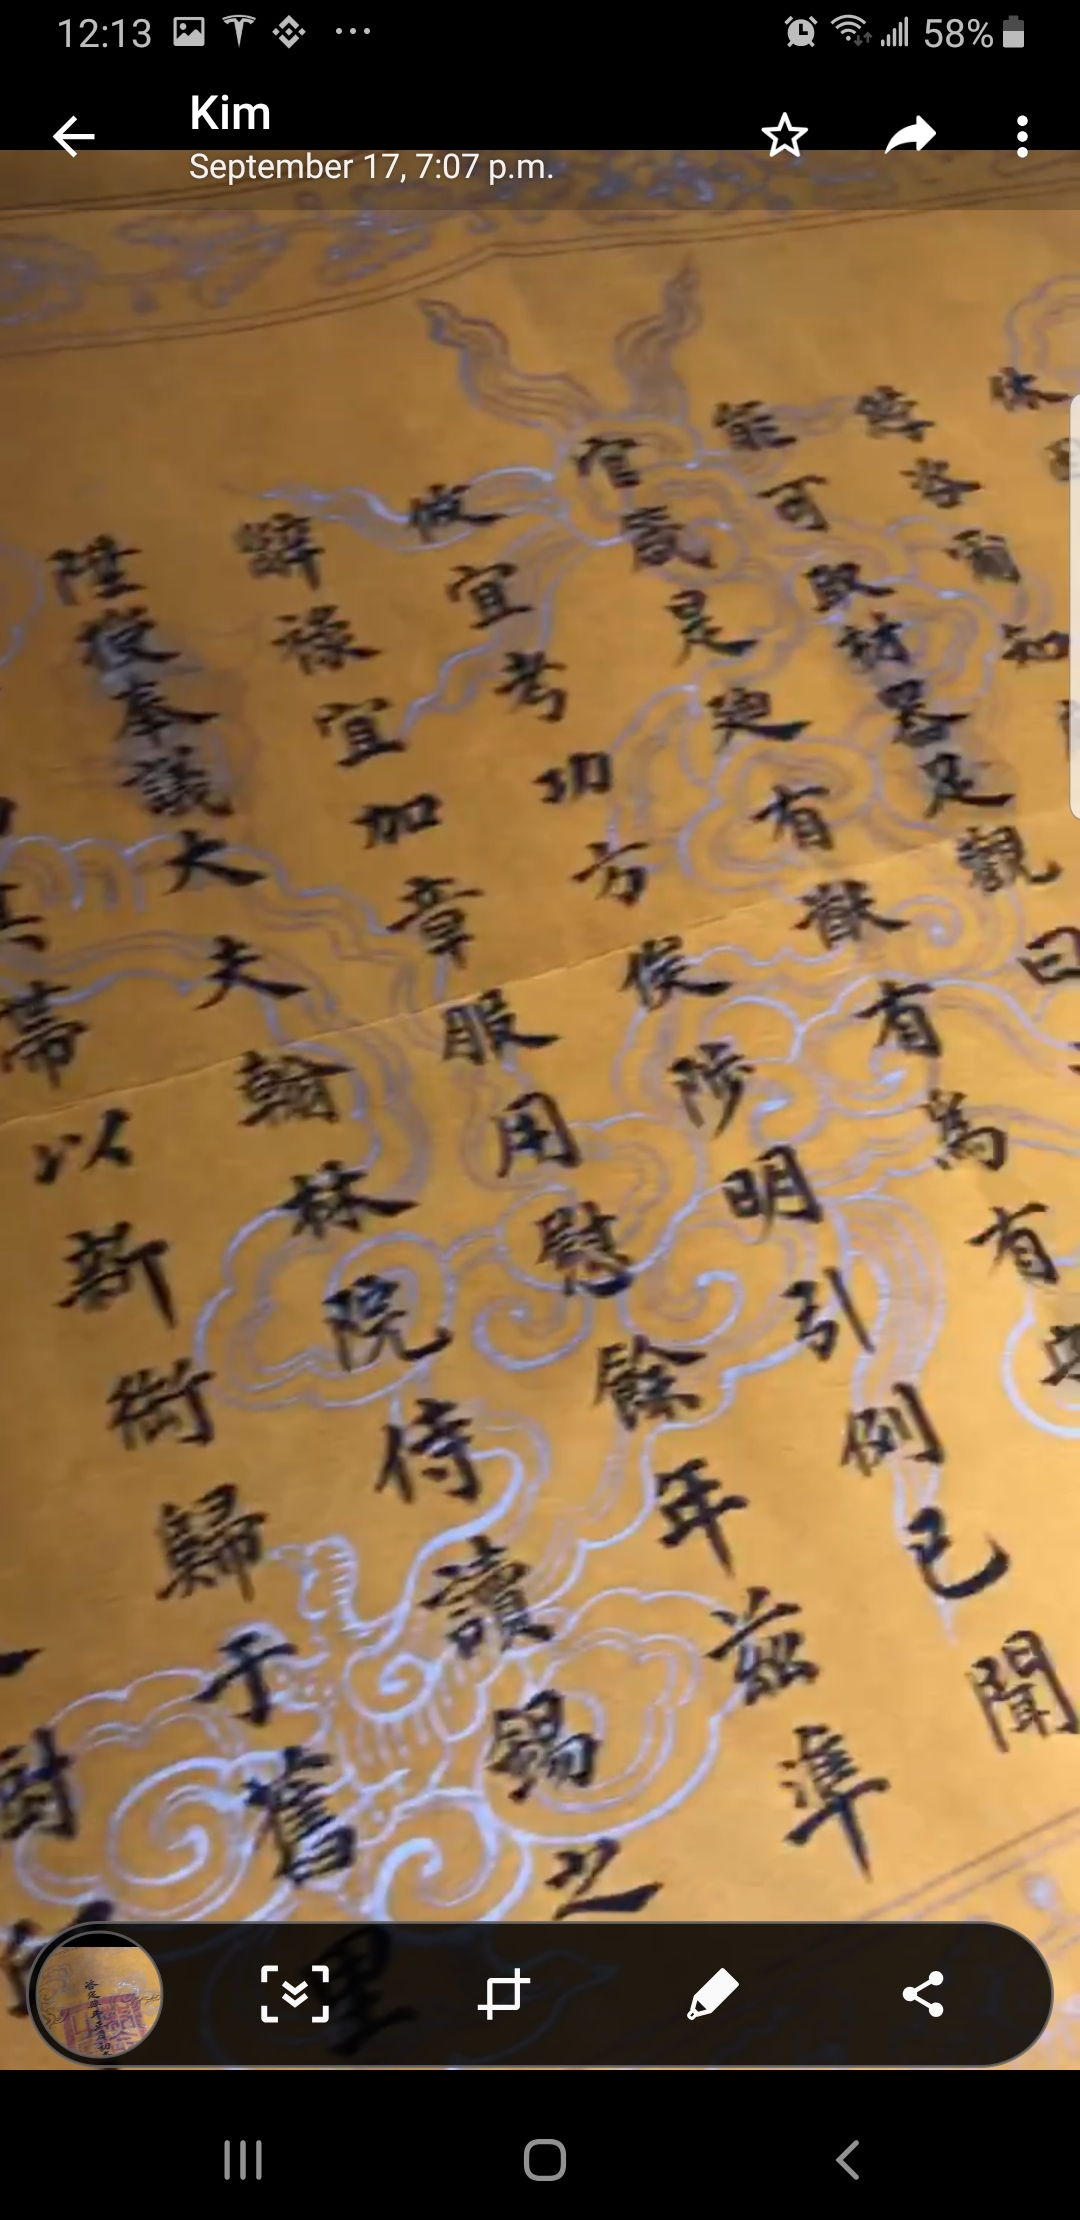 12:13
58%
Kim
September 17, 7:07 p.m.
休
咨爾知
能可取材畧足觀曰
官箴是迪有猷有為有
做宜考功方候陟明引例已聞
辭祿宜加章服用慰餘年茲準
陞授奉議大夫翰林院侍讀錫之
其帶以新銜歸于舊里